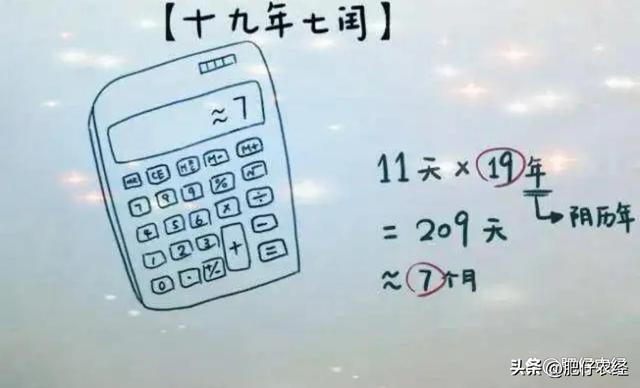 【十九年七闰】
≈7
MC CE M- M+
7 8 9 % √
4 5 6 × ÷
1 2 3 + −
0 · +/− =
11天×19年
→阴历年
= 209天
≈7个月
头条@肥仔农经